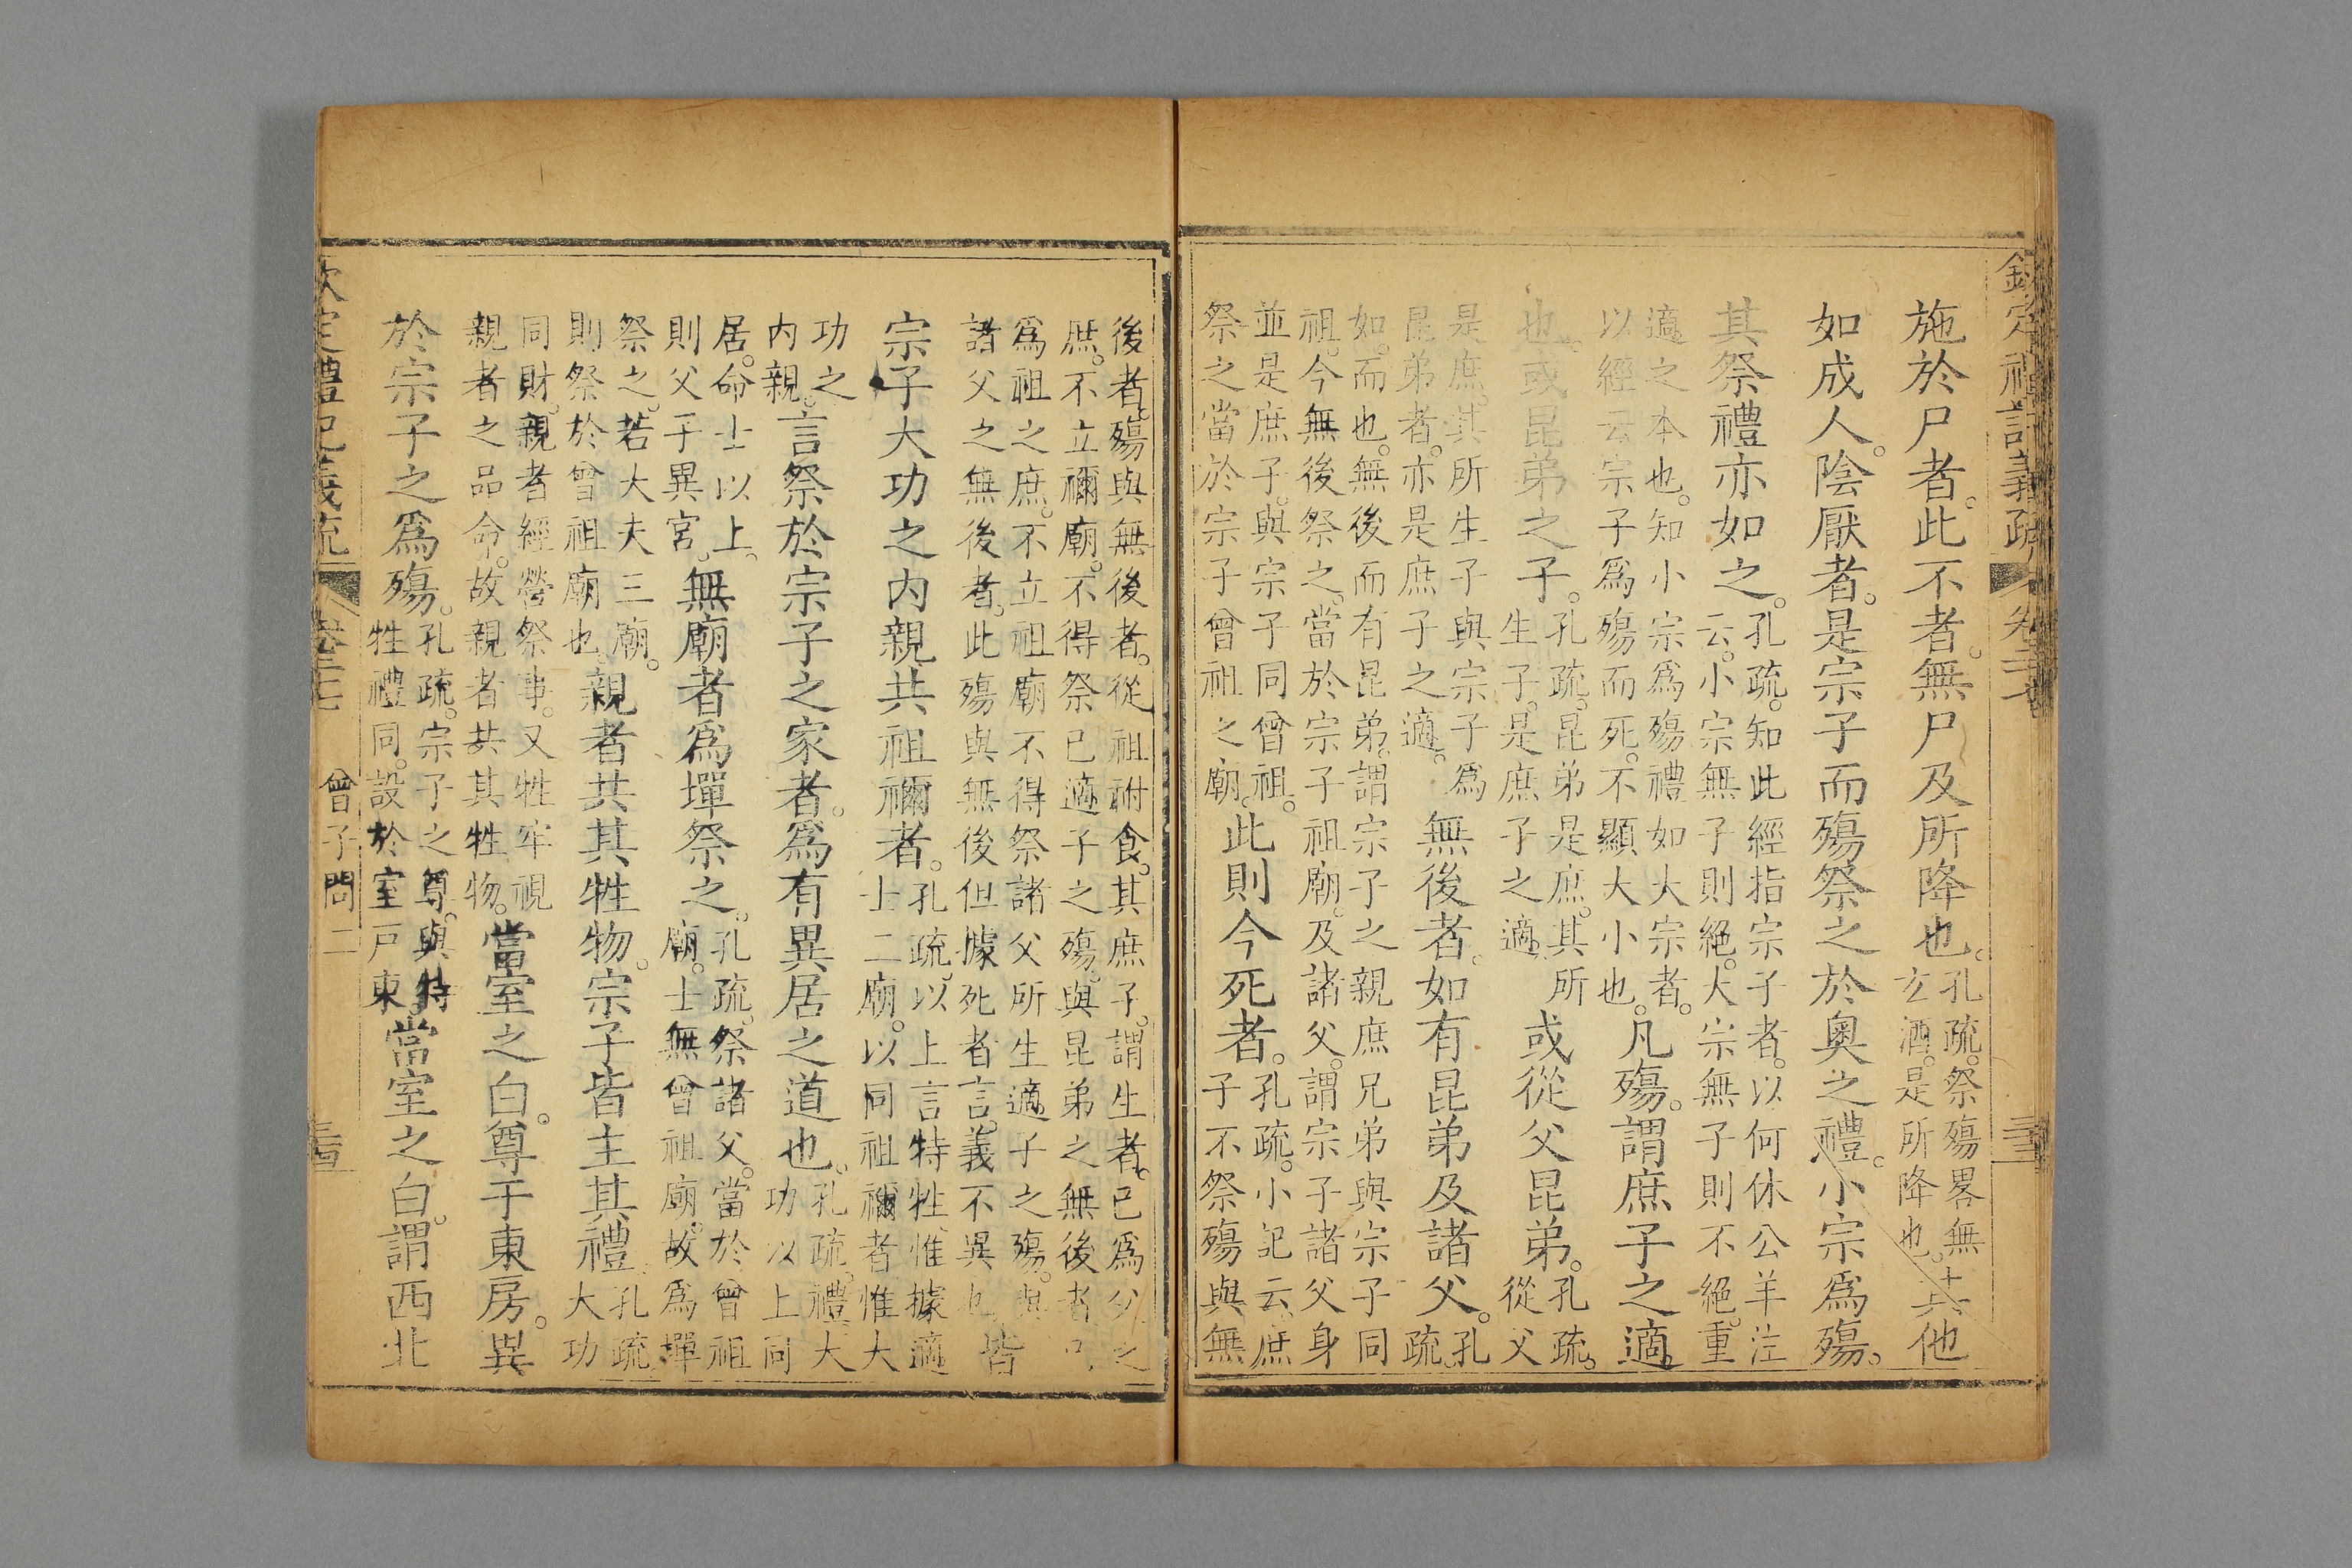 欽定禮記義疏 卷二十七 三三
施於尸者。此不者。無尸及所降也。孔疏。祭殤畧無玄酒。是所降也。其他
如成人。陰厭者。是宗子而殤祭之於奧之禮。小宗爲殤。
其祭禮亦如之。孔疏。知此經指宗子者。以何休公羊注云。小宗無子則絕。大宗無子則不絕。重
適之本也。知小宗爲殤禮如大宗者。以經云宗子爲殤而死。不顯大小也。凡殤。謂庶子之適。
也。或昆弟之子。孔疏。昆弟是庶。其所生子。是庶子之適。或從父昆弟。孔疏。從父
是庶。其所生子與宗子爲昆弟者。亦是庶子之適。無後者。如有昆弟及諸父。孔疏。
如。而也。無後而有昆弟。謂宗子之親庶兄弟與宗子同
祖。今無後祭之。當於宗子祖廟。及諸父。謂宗子諸父身
並是庶子。與宗子同曾祖。祭之當於宗子曾祖之廟。此則今死者。孔疏。小記云。庶子不祭殤與無
後者。殤與無後者。從祖祔食。其庶子。謂生者。已爲父之
庶。不立禰廟。不得祭已適子之殤。與昆弟之無後者。
爲祖之庶。不立祖廟不得祭諸父所生適子之殤。與諸父之無後者。此殤與無後但據死者言。義不異也。皆
宗子大功之內親共祖禰者。孔疏。以上言特牲。惟據適士二廟。以同祖禰者惟大
功之內親。言祭於宗子之家者。爲有異居之道也。孔疏。禮。大功以上同
居。命士以上。則父子異宮。無廟者爲墠祭之。孔疏。祭諸父。當於曾祖廟。士無曾祖廟。故爲墠
祭之。若大夫三廟。則祭於曾祖廟也。親者共其牲物。宗子皆主其禮。孔疏。大功
同財。親者經營祭事。又牲牢視親者之品命。故親者共其牲物。當室之白。尊于東房。異
於宗子之爲殤。孔疏。宗子之尊。與特牲禮同。設於室戶東。當室之白。謂西北
欽定禮記義疏 卷二十七 曾子問二 三四